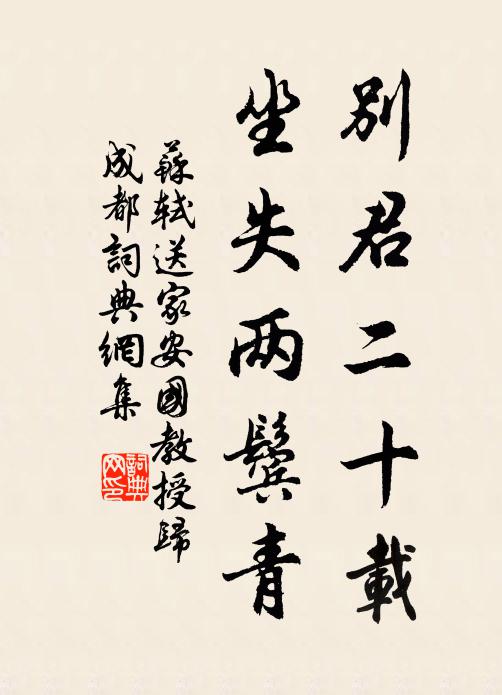 別君二十載
坐失两鬢青
蘇軾送家安國教授歸
成都詞典網集
詞典网印